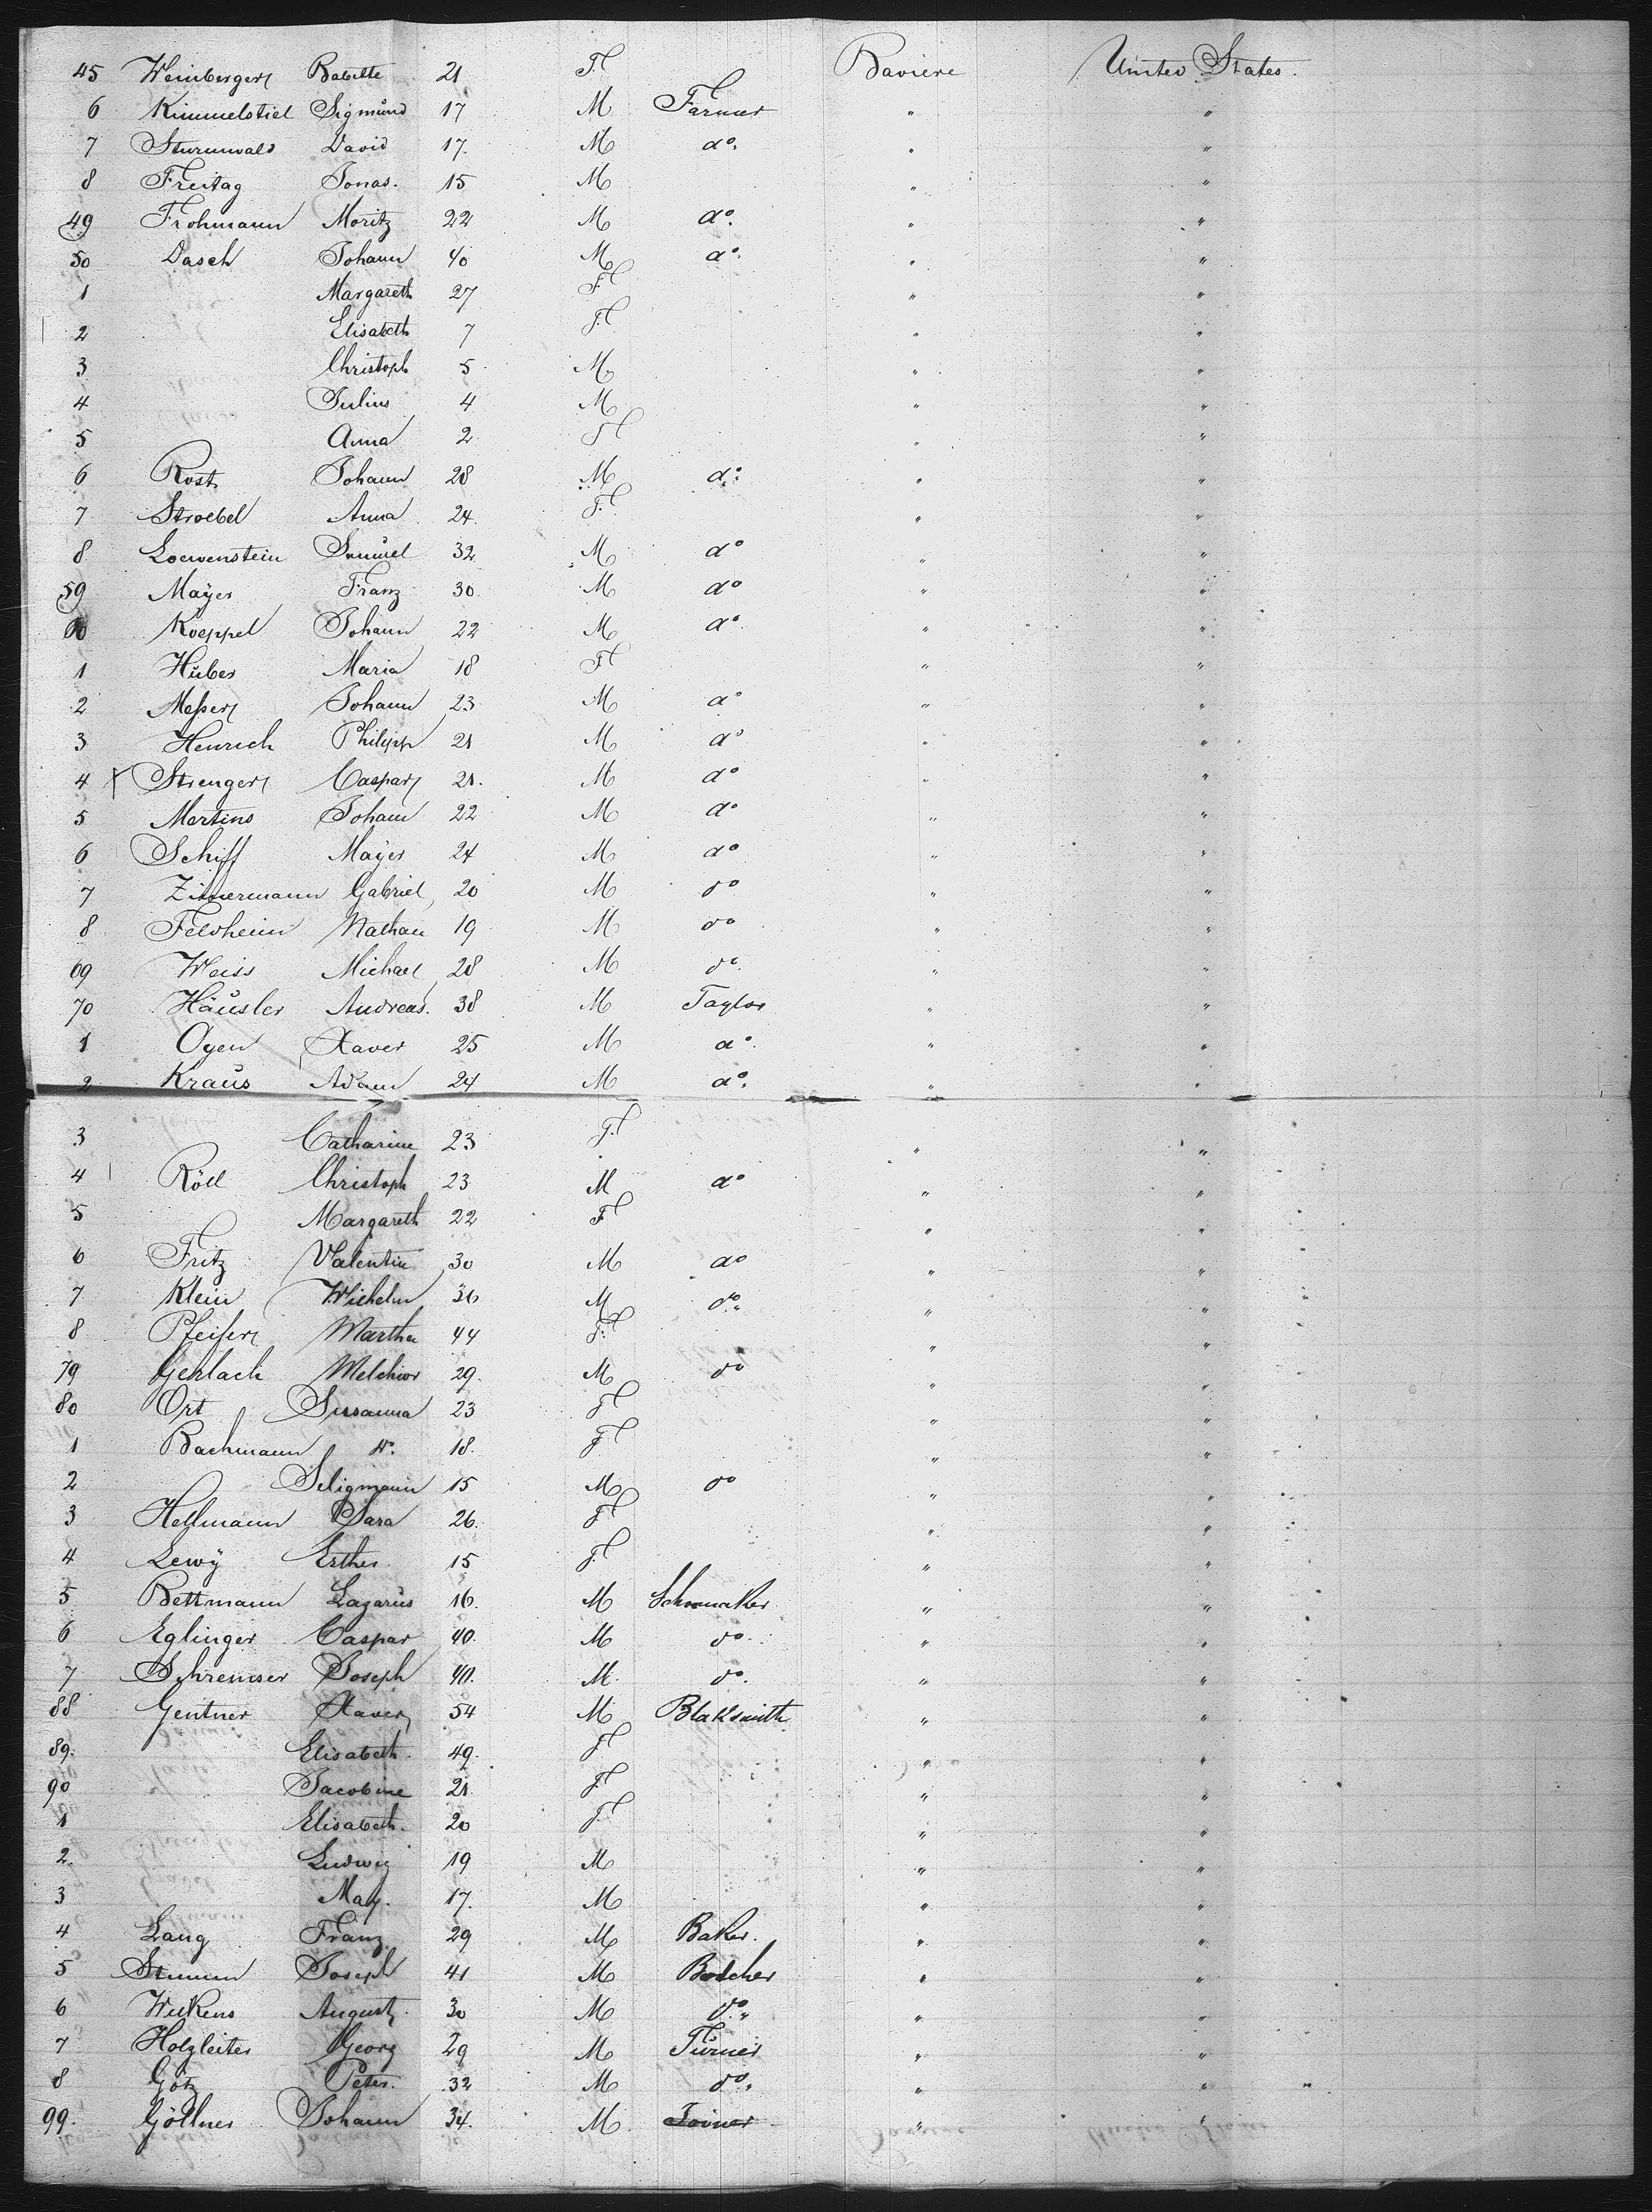 45 Weinberger Babette 21 F. Baviere United States.
6 Kimmelstiel Sigmund 17 M Farmer " "
7 Sturmwald David 17. M do. " "
8 Freitag Jonas. 15 M " "
49 Frohmann Moritz 22 M do. " "
50 Dasch Johann 40 M do. " "
1 Margareth 27 F. " "
2 Elisabeth 7 F. " "
3 Christoph 5 M " "
4 Julius 4 M " "
5 Anna 2 F " "
6 Rost Johann 28 M do. " "
7 Stroebel Anna 24. F. " "
8 Loewenstein Samuel 32 M do " "
59 Mayer Franz 30. M do " "
60 Koeppel Johann 22 M do. " "
1 Huber Maria 18 F. " "
2 Messer Johann 23 M do " "
3 Henrich Philipp 21 M do " "
4 x Strenger Caspar 21. M do " "
5 Mertins Johann 22 M do " "
6 Schiff Mayer 24 M do " "
7 Zimmermann Gabriel 20 M do " "
8 Feldheim Nathan 19 M do " "
69 Weiss Michael 28 M do. " "
70 Häusler Andreas. 38 M Taylor " "
1 Ogen Xaver 25 M do. " "
2 Kraus Adam 24 M do. " "
3 Catharine 23 F. " "
4 Röll Christoph 23 M do " "
5 Margareth 22 F " "
6 Fritz Valentin 30 M do " "
7 Klein Wilhelm 36 M do. " "
8 Pfeifer Martha 44 F. " "
79 Gerlach Melchior 29. M do " "
80 Ort Susanna 23 F " "
1 Bachmann do. 18. F " "
2 Seligmann 15 M do " "
3 Hellmann Sara 26. F " "
4 Lewÿ Esther 15 F. " "
5 Bettmann Lazarus 16. M Schoomaker " "
6 Eglinger Caspar 40. M do. " "
7 Schremser Joseph 40. M. do. " "
88 Gentner Xaver 54 M Blaksmith " "
89. Elisabeth. 49. F " "
90 Jacobine 21. F. " "
1 Elisabeth. 20 F. " "
2. Ludwig 19 M " "
3 Max. 17. M " "
4 Lang Franz 29 M Baker. " "
5 Joseph 41 M Botcher " "
6 August 30 M do. " "
7 Holzleiter Georg 29 M Turner " "
8 Götz Peter. 32 M do. " "
99. Göllner Johann 34. M Joiner " "